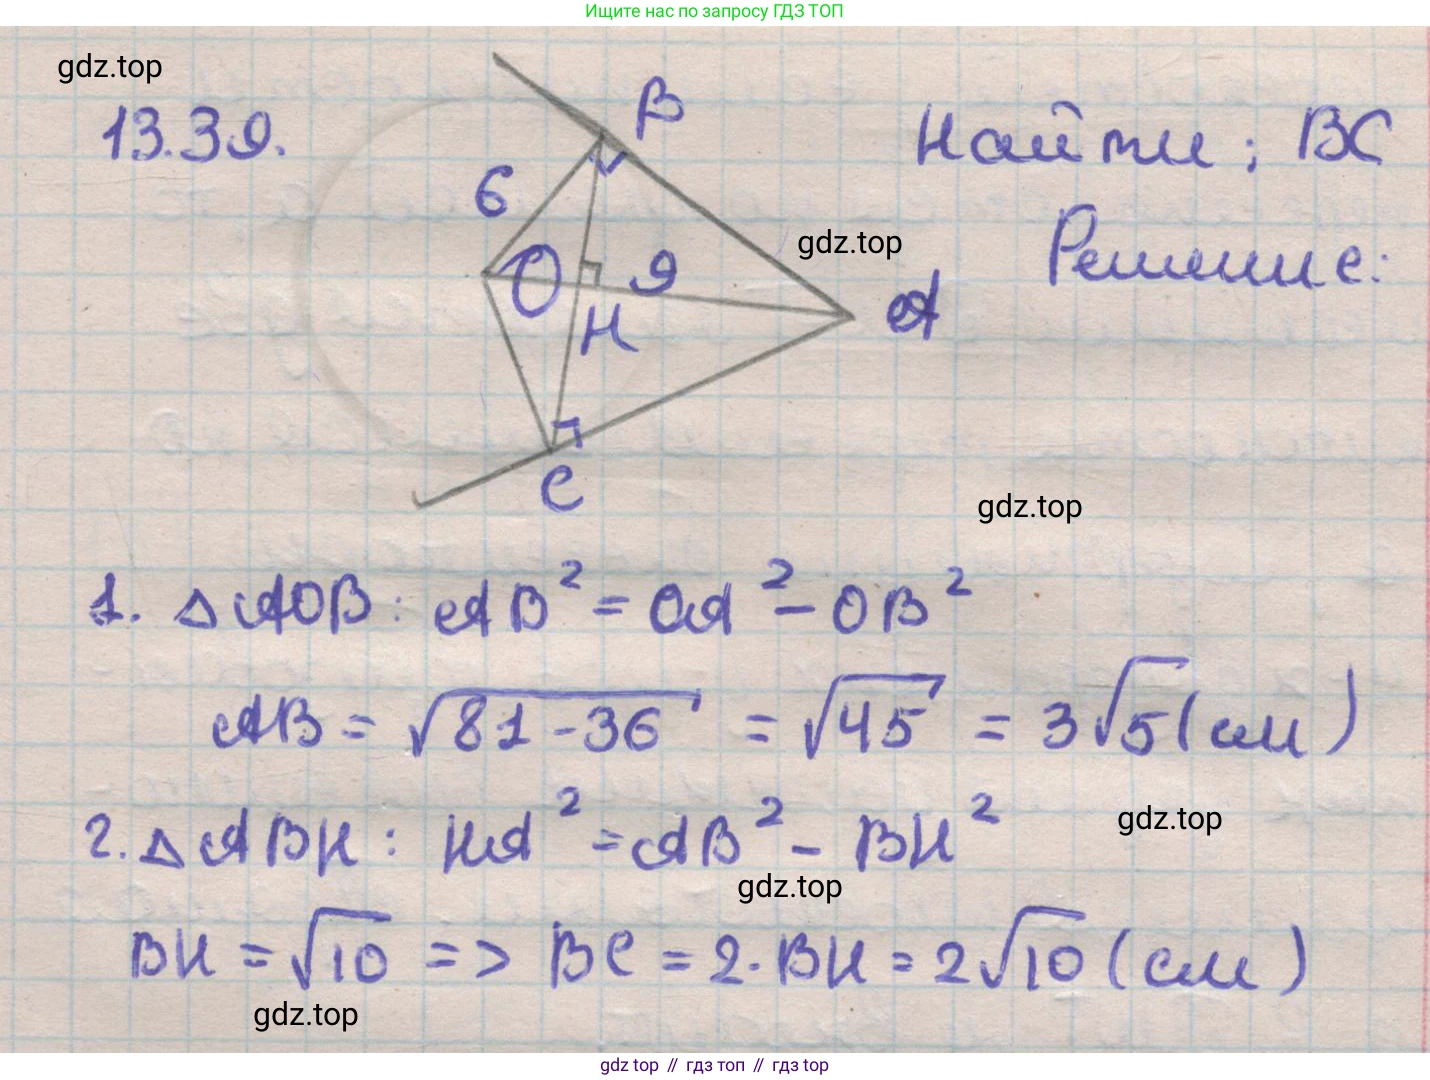 Ищите нас по запросу ГДЗ ТОП
gdz.top
13.39.
B
Найти: BC
6
Решение:
gdz.top
O
9
H
A
C
gdz.top
1. △AOB: AB² = OA² - OB²
AB = √81-36 = √45 = 3√5 (см)
2. △ABH: HA² = AB² - BH²
gdz.top
gdz.top
BH = √10 => BC = 2·BH = 2√10 (см)
gdz.top
gdz top // гдз топ // gdz top